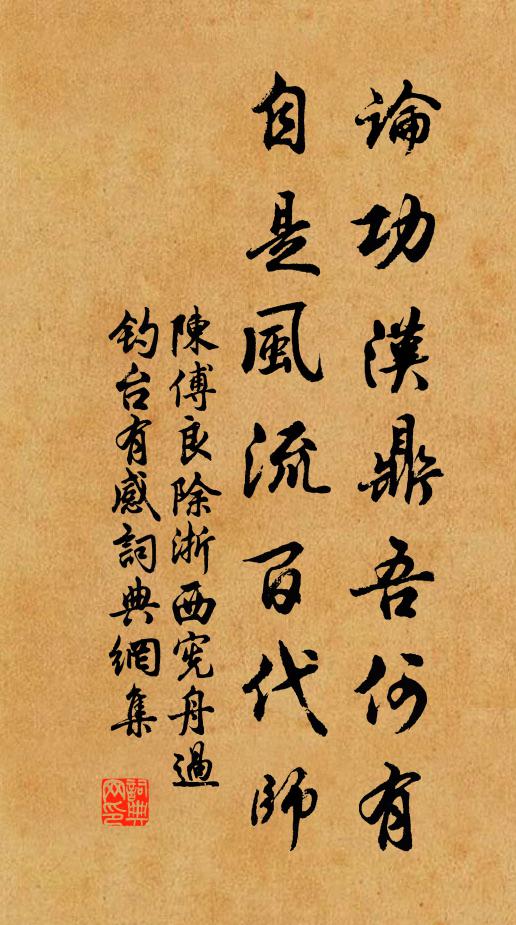 論功漢鼎吾何有
自是風流百代師
陳傅良除浙西宪舟過
钓台有感詞典網集
詞典
网印